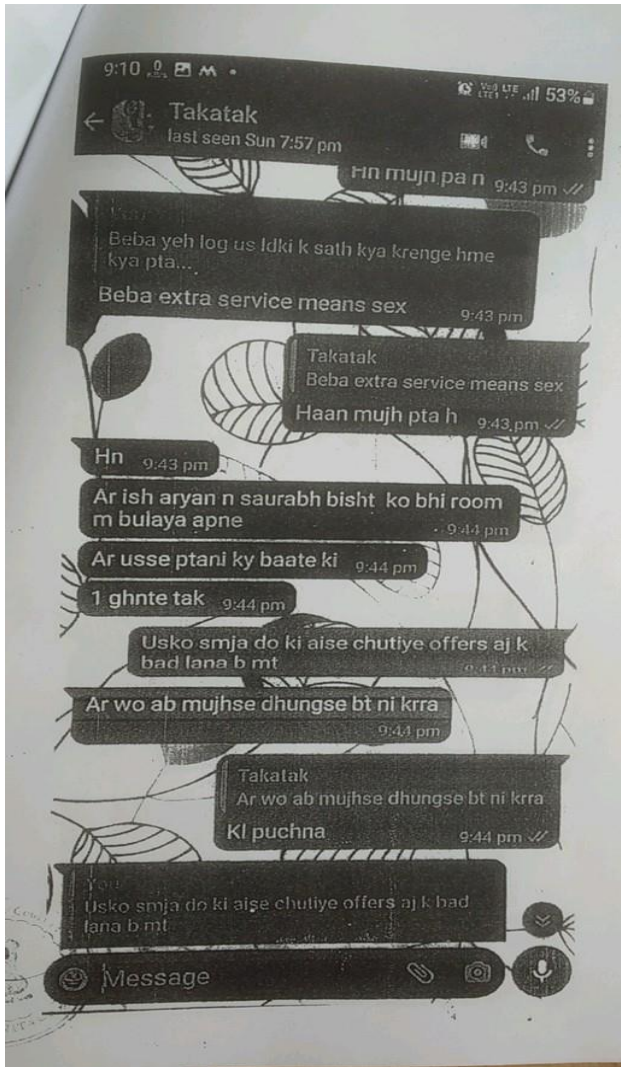 9:10
LTE 53%
Takatak
last seen Sun 7:57 pm
Hn mujh pa n 9:43 pm
Beba yeh log us ldki k sath kya krenge hme
kya pta...
Beba extra service means sex 9:43 pm
Takatak
Beba extra service means sex
Haan mujh pta h 9:43 pm
Hn 9:43 pm
Ar ish aryan n saurabh bisht ko bhi room
m bulaya apne 9:44 pm
Ar usse ptani ky baate ki 9:44 pm
1 ghnte tak 9:44 pm
Usko smja do ki aise chutiye offers aj k
bad lana b mt 9:44 pm
Ar wo ab mujhse dhungse bt ni krra
9:44 pm
Takatak
Ar wo ab mujhse dhungse bt ni krra
Kl puchna 9:44 pm
You
Usko smja do ki aise chutiye offers aj k bad
lana b mt
Message